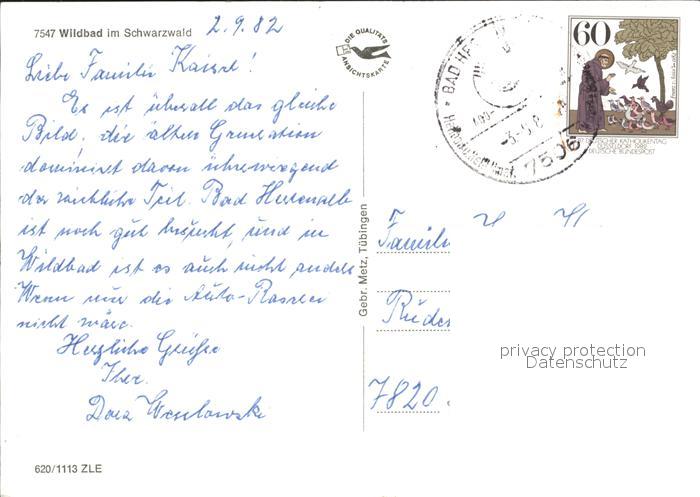 7547 Wildbad im Schwarzwald
2.9.82
DIE QUALITÄTS
ANSICHTSKARTE
Liebe Familie Kaisel!
Es ist überall das gleiche
Bild, die ältere Generation
dominiert davon überwiegend
der weibliche Teil. Bad Herrenalb
ist noch gut besucht, und in
Wildbad ist es auch nicht anders
Wenn nur die Auto-Raserei
nicht wäre.
Herzliche Grüße
Ihre
Dora Weselowski
620/1113 ZLE
Gebr. Metz, Tübingen
60
KATHOLIKENTAG
DÜSSELDORF 1982
DEUTSCHE BUNDESPOST
BAD HE
7506
Famili
Rüdes
7820
privacy protection
Datenschutz